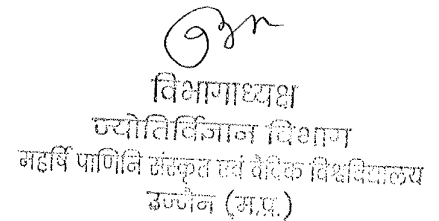 विभागाध्यक्ष
ज्योतिर्विज्ञान विभाग
महर्षि पाणिनि संस्कृत एवं वैदिक विश्वविद्यालय
उज्जैन (म.प्र.)